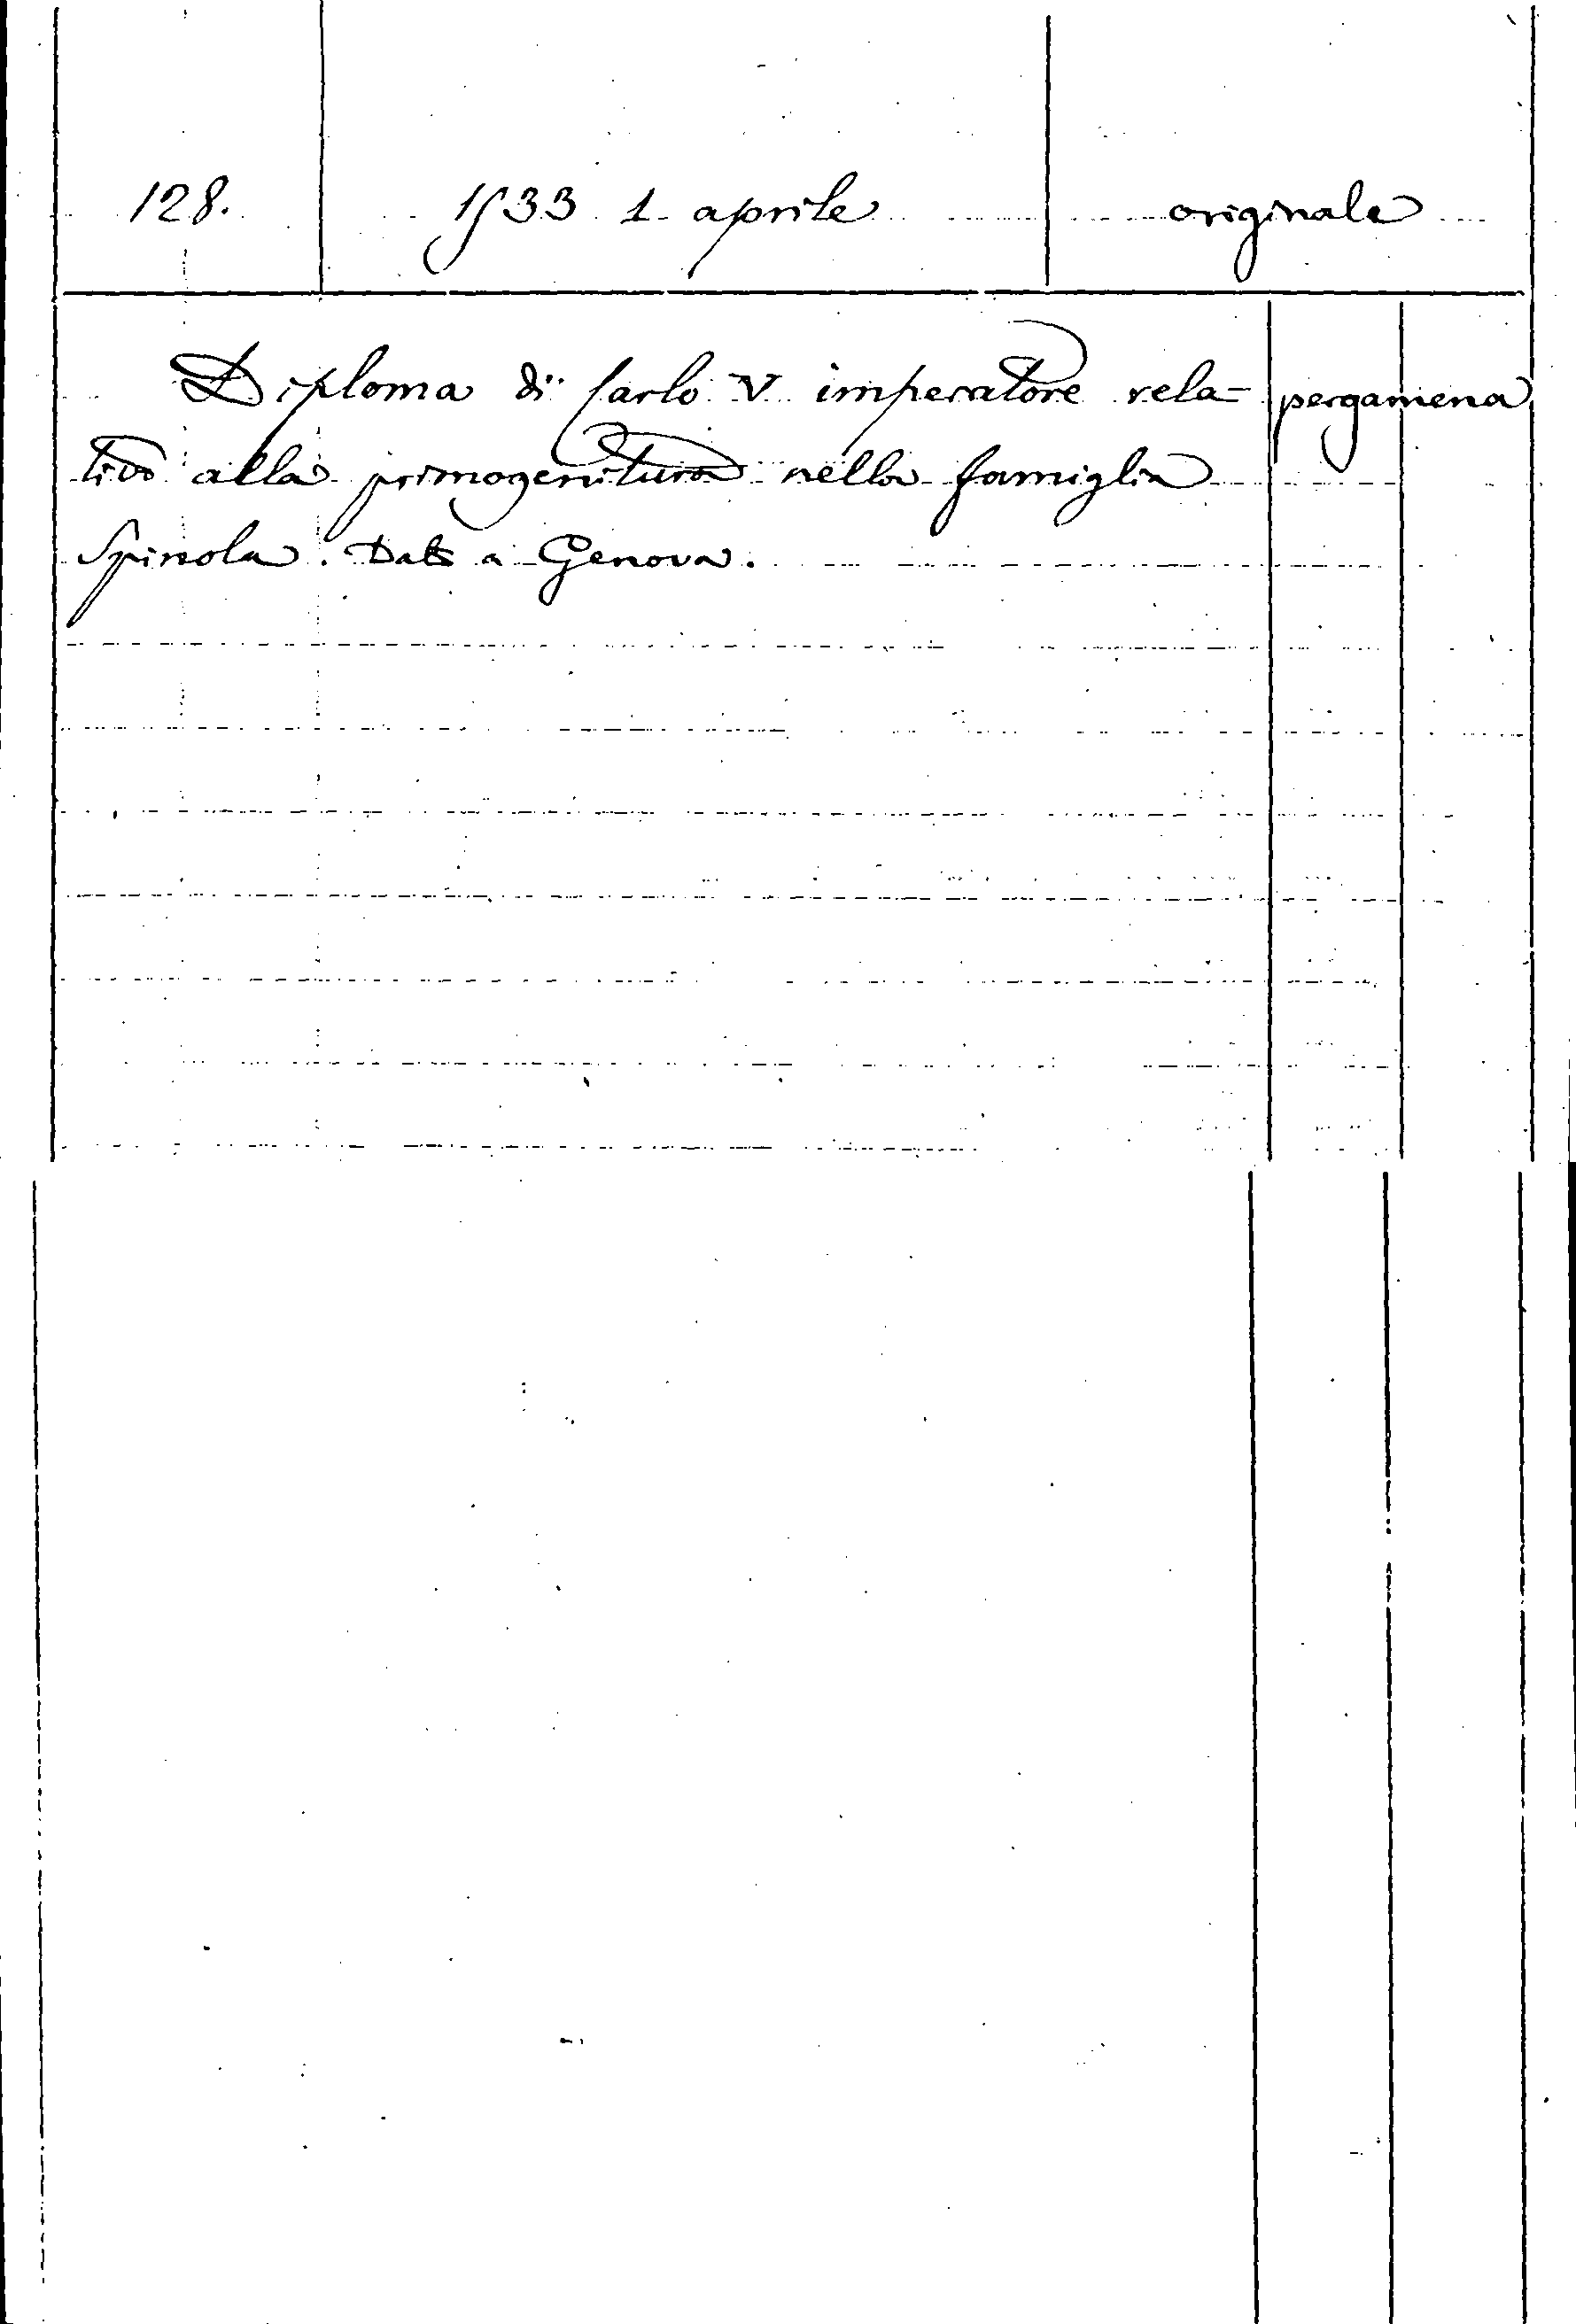 128. 1533 1 aprile originale
Diploma di Carlo V imperatore rela= pergamena
tivo alla primogenitura nella famiglia
Spinola. Dato a Genova.